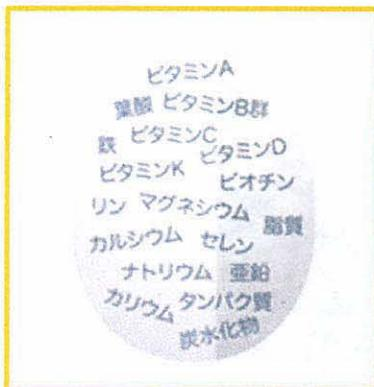 ビタミンA
葉酸 ビタミンB群
鉄 ビタミンC ビタミンD
ビタミンK ビオチン
リン マグネシウム 脂質
カルシウム セレン
ナトリウム 亜鉛
カリウム タンパク質
炭水化物